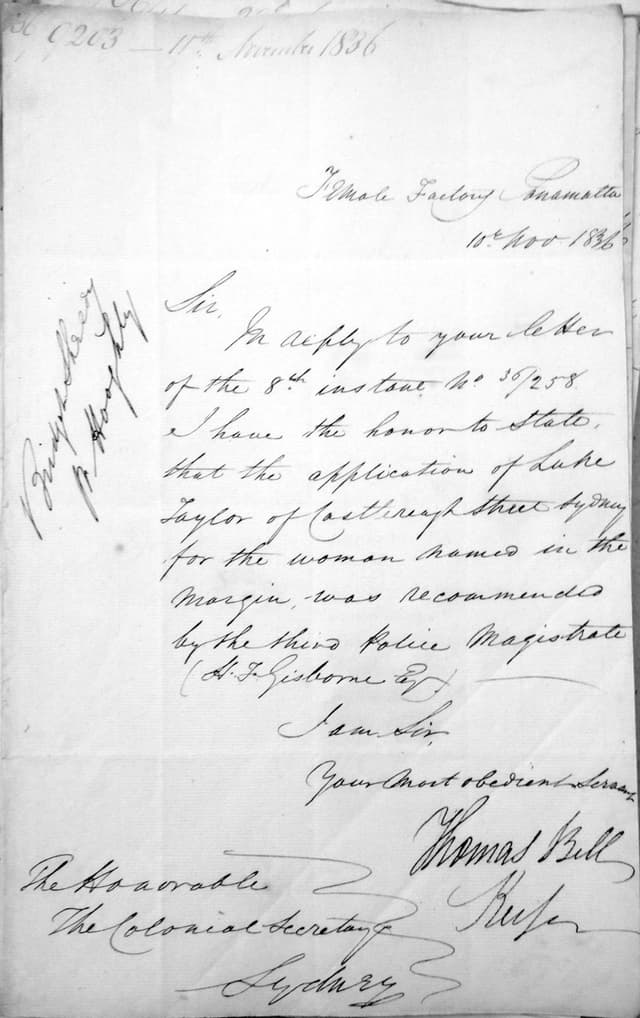 36/9203 — 10th November 1836
Female Factory Parramatta
10th Nov 1836
Sir,
In reply to your letter
of the 8th instant No 36/258
I have the honor to state,
that the application of Luke
Taylor of Castlereagh Street Sydney
for the woman named in the
margin, was recommended
by the third Police Magistrate
(H. F. Gisborne Esq)
I am Sir,
Your most obedient Servant
Thomas Bell
Keeper
Bridget
pr Hooghly
The Honorable
The Colonial Secretary
Sydney